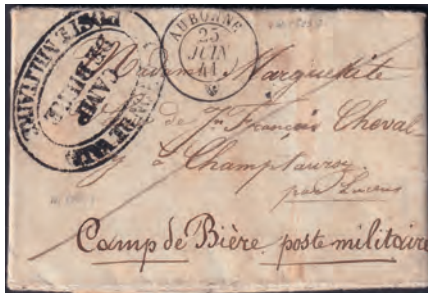 POSTE MILITAIRE
CAMP
DE BIÈRE
AUBONNE
25
JUIN
41
Madame Marguerite
de Jn François Cheval-
y à Champtauroz
par Lucens
Camp de Bière poste militaire